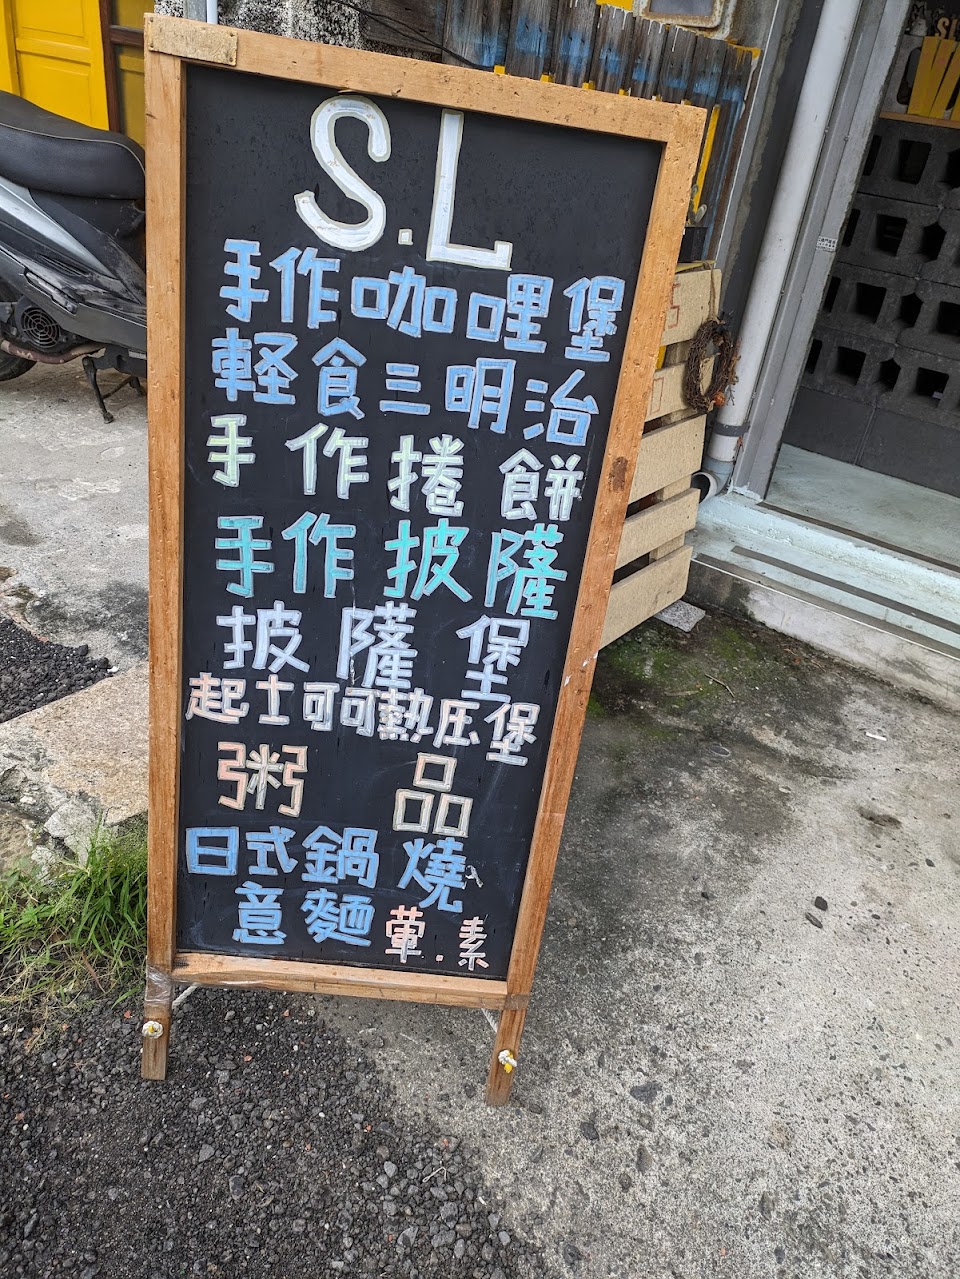 S.L
手作咖哩堡
軽食三明治
手作捲餅
手作披薩
披薩堡
起士可可熱压堡
粥品
日式鍋燒
意麵 葷.素